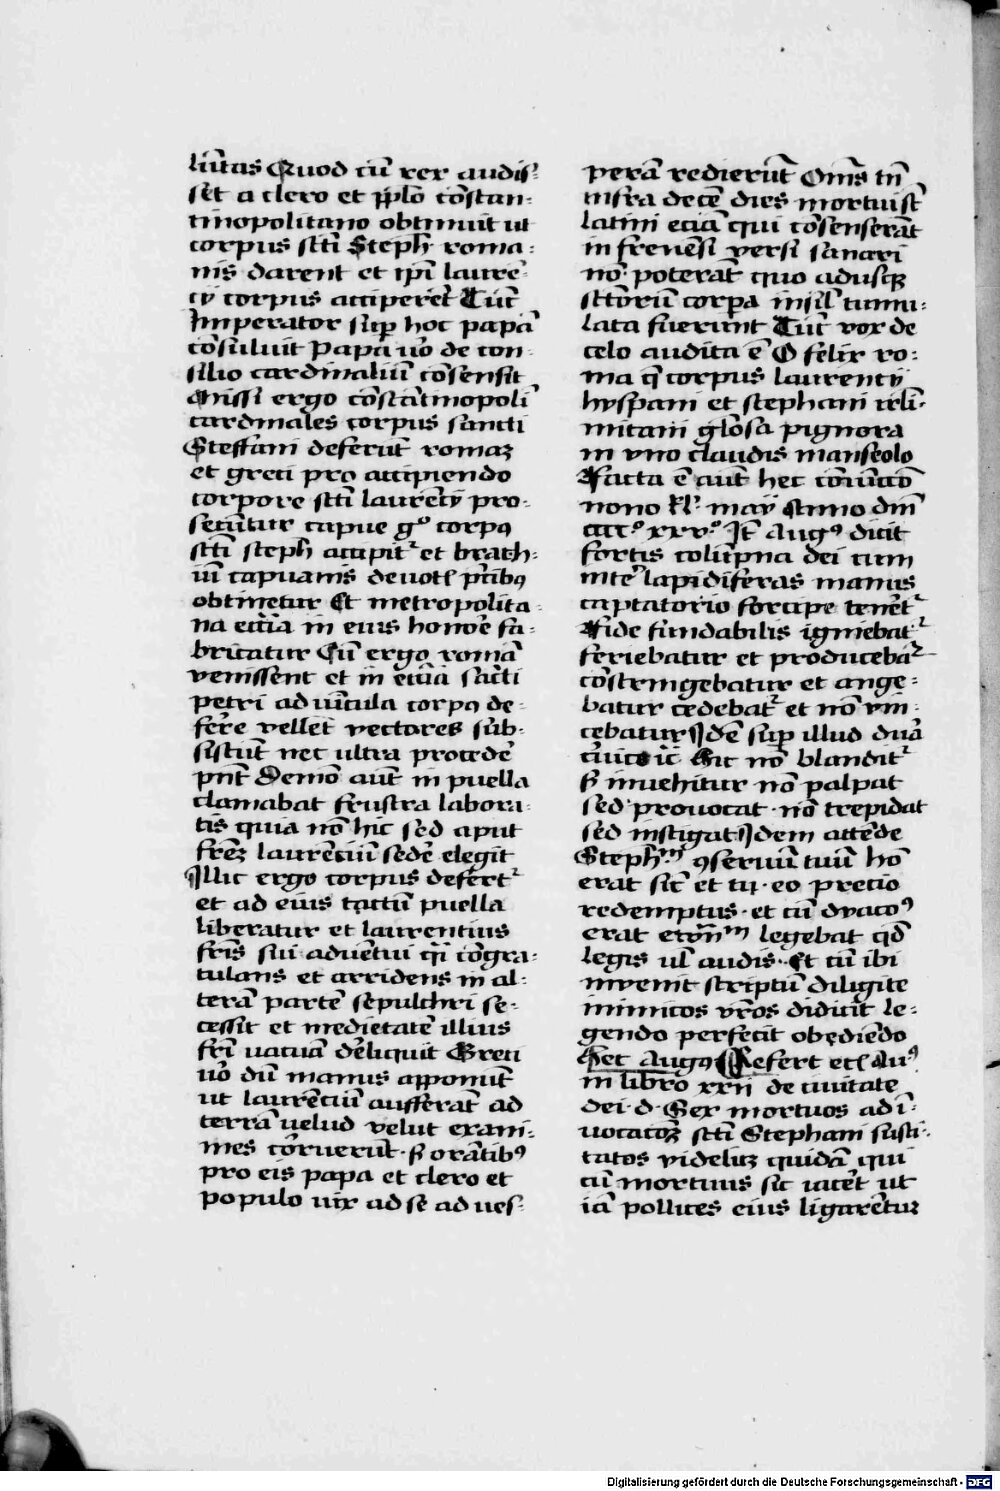 liūtas Quod cū rex audis-
set a clero et pplō cōstan-
tinopolitano obtinuit ut
corpus scti Steph̄ roma-
nis darent et ipi laurē-
cij corpus acciperēt Tūc
Imperator sup hoc papā
cōsuluit Papa uō de con-
silio cardinaliū cōsensit
Missi ergo cōstātinopoli
cardinales corpus sancti
Steffani deferūt romaꝫ
et greci pro accipiendo
corpore scti laurēcij pro-
secūtur capue gº corpꝰ
scti steph̄ accipit᷑ et brach-
iū capuanis deuotꝭ p̄cibꝰ
obtinetur Et metropolita-
na ecc̄ia in eius honorē fa-
bricatur Cū ergo romā
venissent et in ecc̄ia sācti
petri ad uīcula corpꝰ de-
ferre vellēt vectores sub-
sistūt nec ultra procedē
pn̄t Demō aūt in puella
clamabat frustra labora-
tis quia nō hic sed aput
frēꝫ laurēciū sedē elegit
Illic ergo corpus defert᷑
et ad eius tactū puella
liberatur et laurentius
fr̄is sui aduētui q̄i cōgra-
tulans et arridens in al-
terā partē sepulchri se-
cessit et medietatē illius
fr̄i uacuā dēliquit Greci
uō dū manus apponūt
ut laurēciū aufferāt ad
terrā uelud velut exani-
mes cōrruerūt · s̄ orātibꝰ
pro eis papa et clero et
populo uix ad se ad ues-
perā redierūt Om̄s tn̄
infra decē dies mortui sūt
latini eciā qui cōsenserāt
in frenesi versi sanari
nō poterāt quo adusqꝫ
sctōrū corpa insil̄ tumu-
lata fuerunt Tūc vox de
celo audita ē O felix ro-
ma q̄ corpus laurencij
hyspani et stephani irl̄i-
mitani gl̄osa pignora
in vno claudis mauseolo
Facta ē aūt hec cōiūctō
nono kl̄ · maij Anno dn̄i
ccccº xxvº · It̄ Augꝰ dicit
fortis colūpna dei cum
int̄ lapidiferas manus
captatorio forcipe tenēt᷑
Fide fūndabilis igniebat᷑
feriebatur et producebat᷑
cōstringebatur et ange-
batur cedebat᷑ et nō vin-
cebatur Idē sup illud durā
c̄uice ⁊c̄ Hic nō blandit᷑
s̄ inuehitur nō palpat
sed prouocat · nō trepidat
sed instigat Idem attēde
Steph̄ᵐ ꝯseruū tuū hō
erat sic̄ et tu · eo precio
redemptus · et cū dyacoꝰ
erat legebat qd̄
legis ul̄ audis · Et cū ibi
inuenit scriptū diligite
inimicos vr̄os didicit le-
gendo perfecit obędiēdo
Hec augꝰ Refert ecꝭ Auꝰ
in libro xxii de ciuitate
dei · d · Sex mortuos ad ī-
uocacōꝫ scti Stephani susci-
tatos videliꝫ quidā qui
cū mortuus sic iacēt ut
iā pollices eius ligarētur
Digitalisierung gefördert durch die Deutsche Forschungsgemeinschaft - DFG